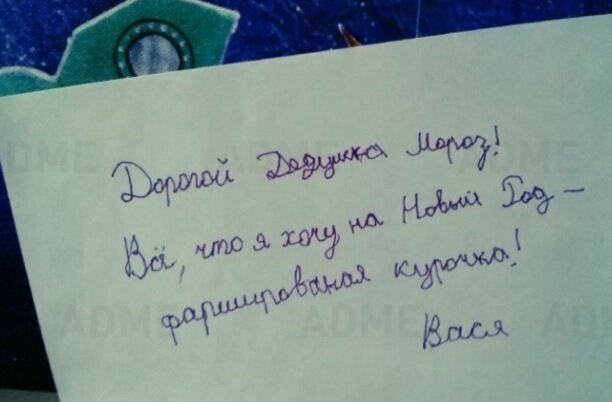 Дорогой Дедушка Мороз!
Всё, что я хочу на Новый Год –
фаршированая курочка!
Вася
ADME
ADME
ADME
ADME
ADME
AD